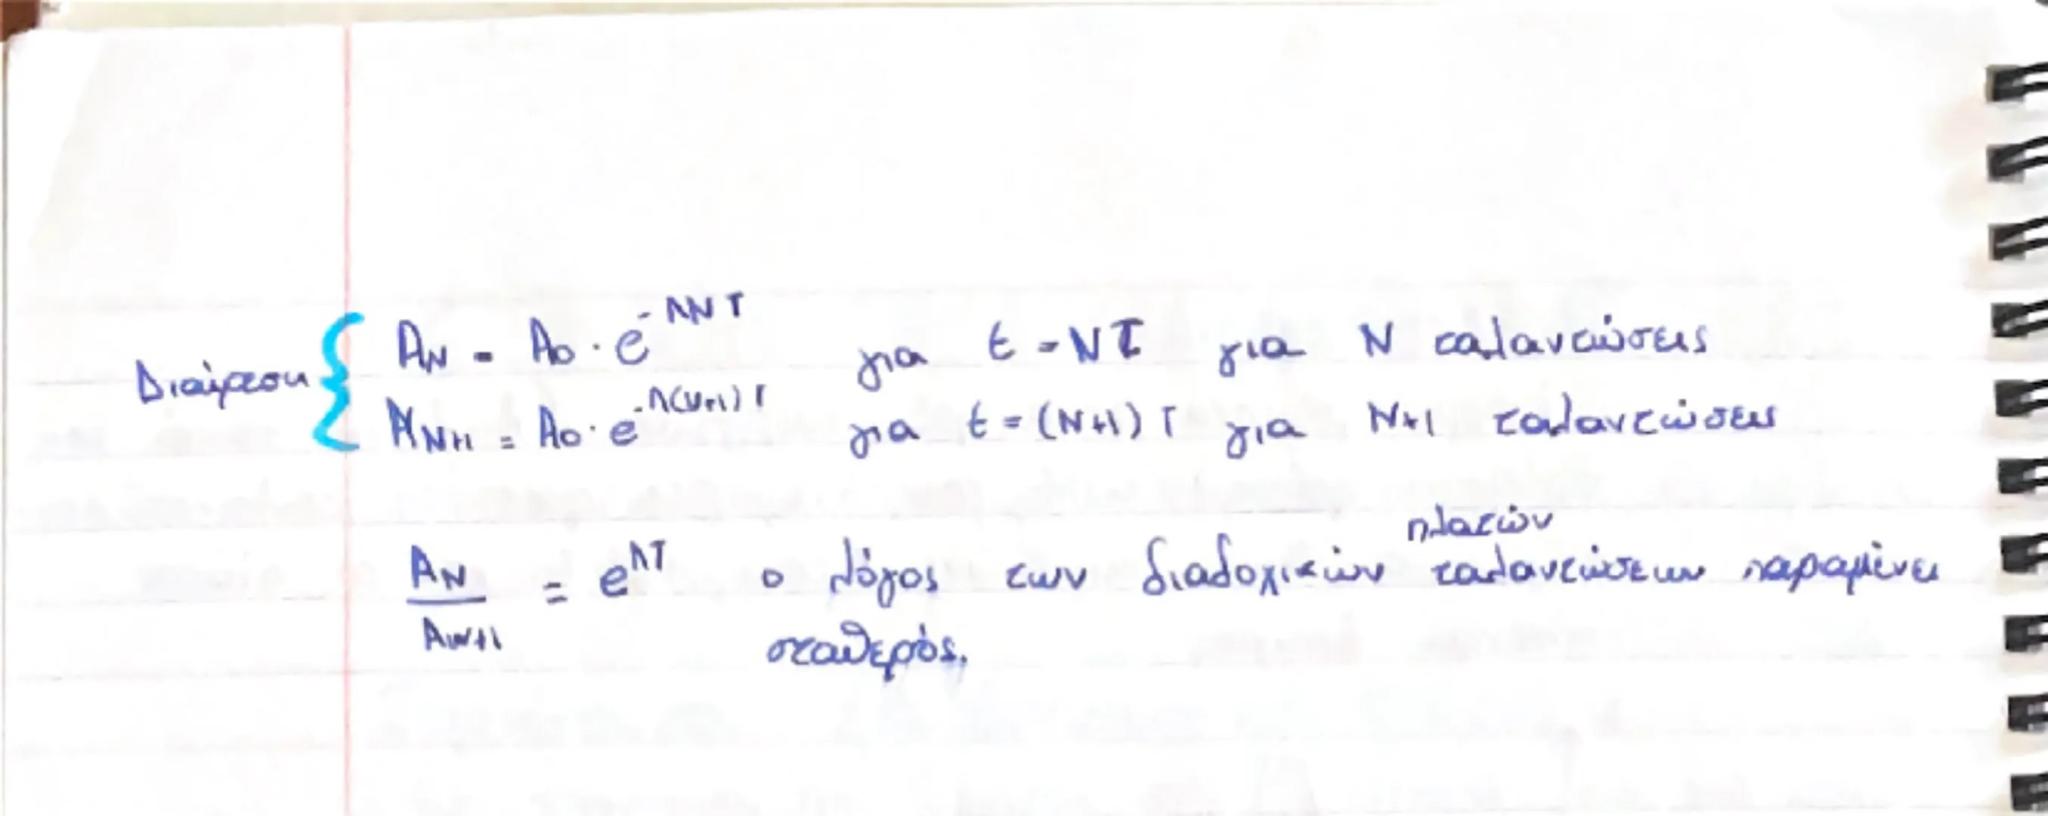 Διαίρεση { A_N = A_0 · e^{-ΛNT} για t = NT για N ταλαντώσεις
A_{N+1} = A_0 · e^{-Λ(N+1)T} για t = (N+1) T για N+1 ταλαντώσεις
A_N / A_{N+1} = e^{ΛT} ο λόγος των διαδοχικών πλατών ταλαντώσεων παραμένει
σταθερός.